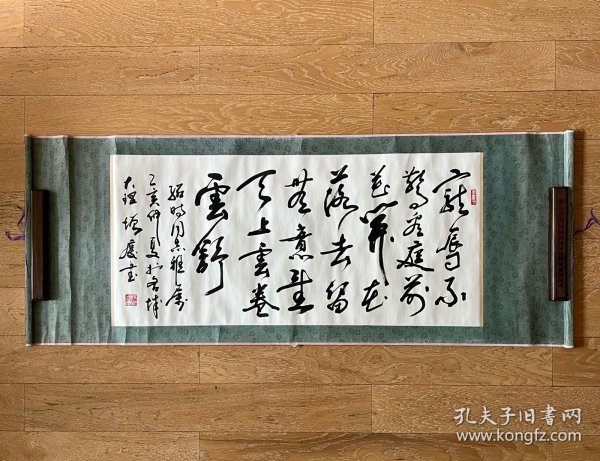 寵辱不
驚看庭前
花開花
落去留
無意望
天上雲卷
雲舒
同志雅
乙亥仲夏於城
书
孔夫子旧书网
www.kongfz.com